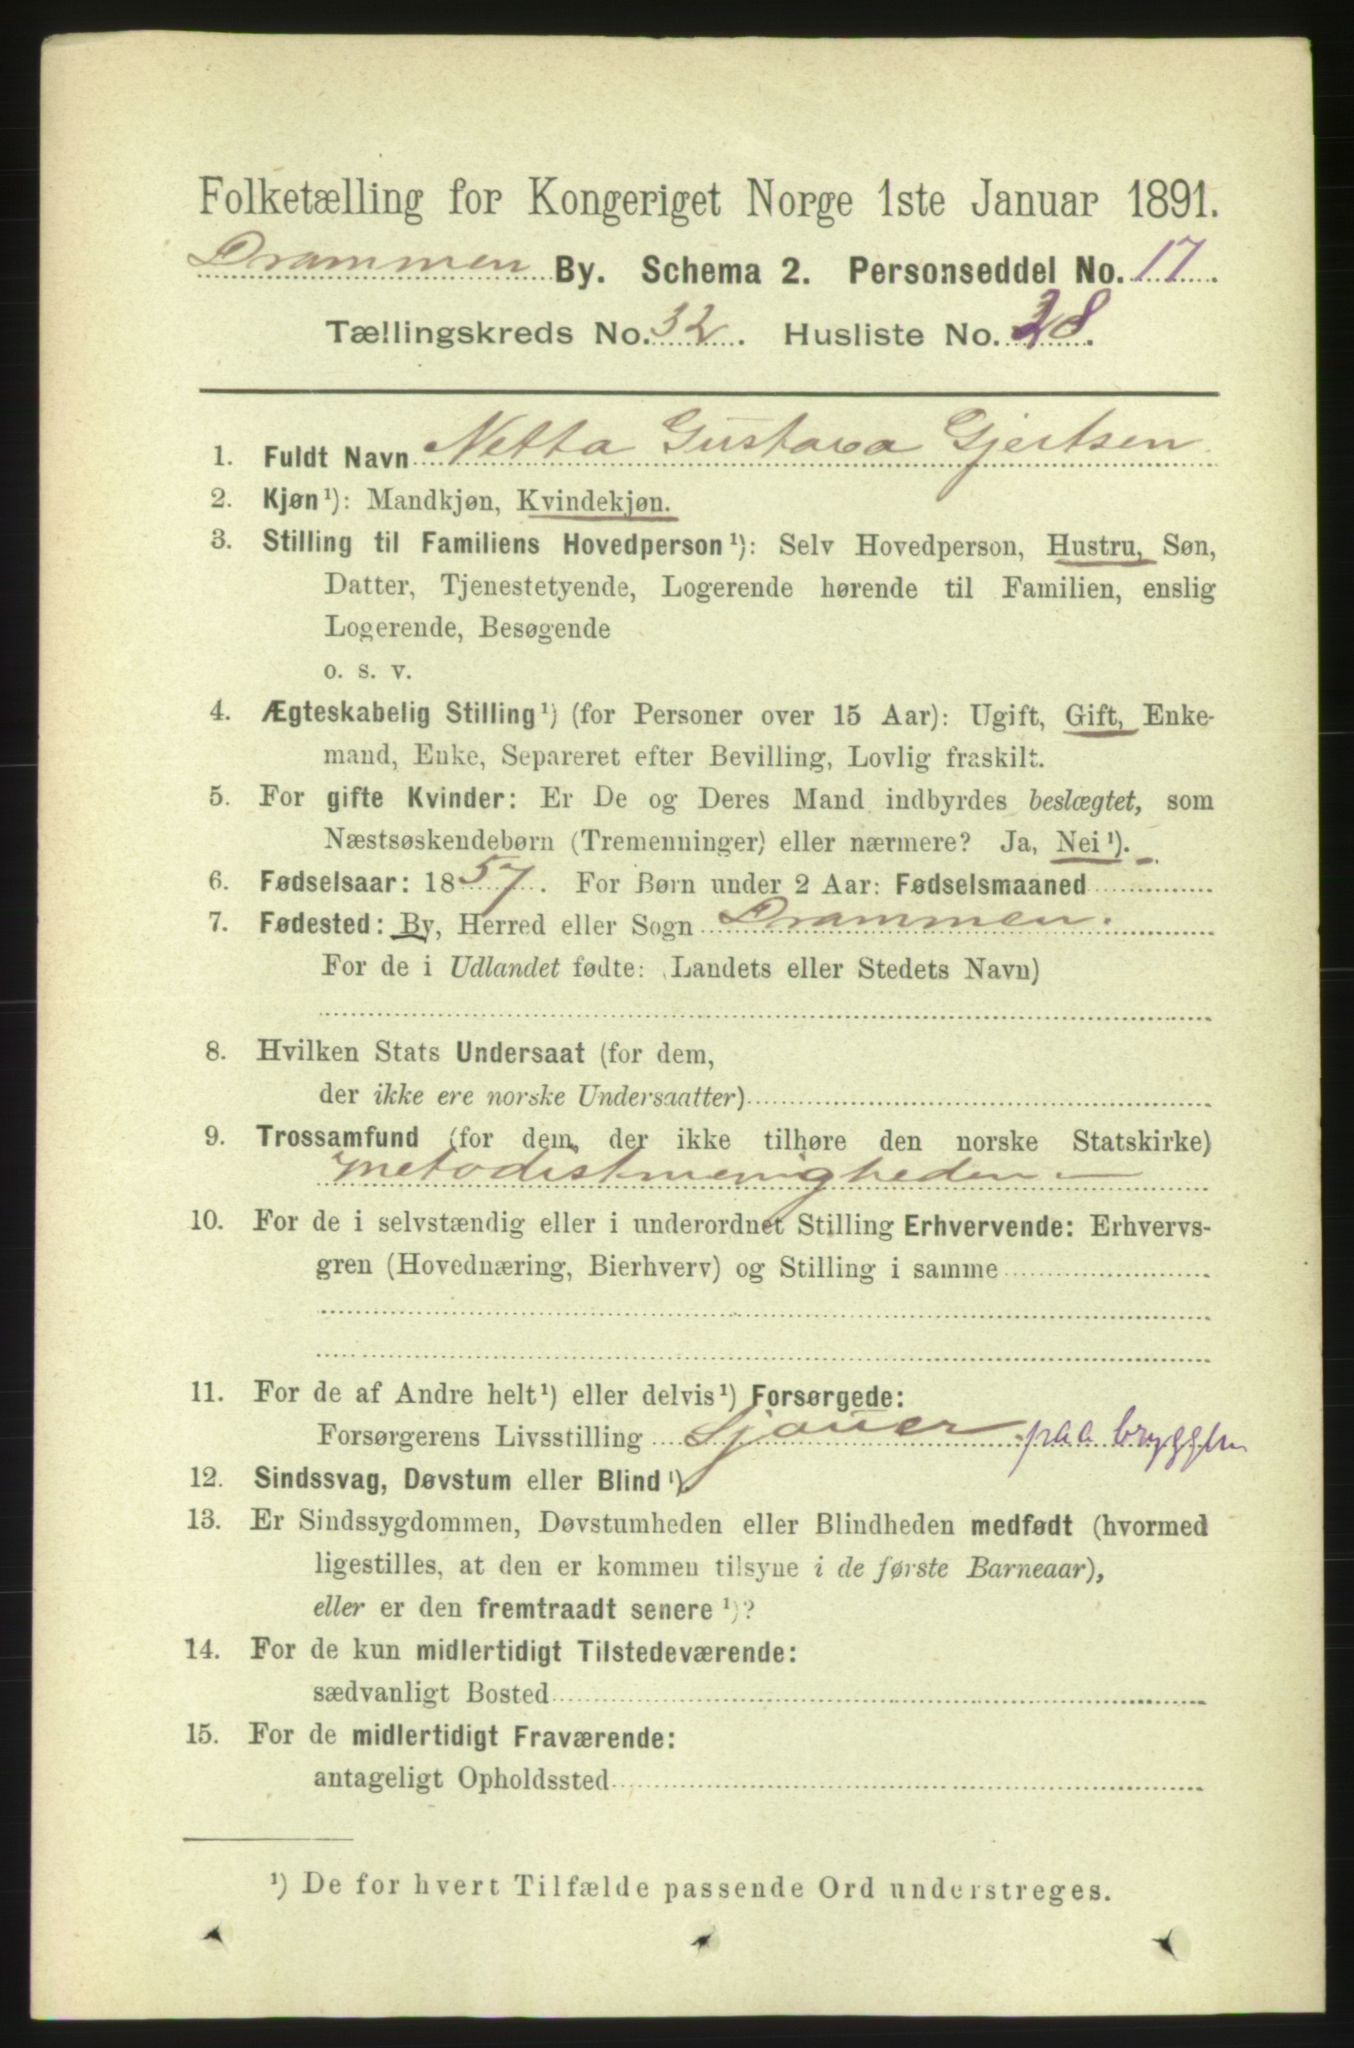 Folketælling for Kongeriget Norge 1ste Januar 1891.
Drammen By. Schema 2. Personseddel No. 17.
Tællingskreds No. 32. Husliste No. 28.
1. Fuldt Navn Netta Gustava Gjertsen
2. Kjøn¹): Mandkjøn, Kvindekjøn.
3. Stilling til Familiens Hovedperson¹): Selv Hovedperson, Hustru, Søn,
Datter, Tjenestetyende, Logerende hørende til Familien, enslig
Logerende, Besøgende
o. s. v.
4. Ægteskabelig Stilling¹) (for Personer over 15 Aar): Ugift, Gift, Enke-
mand, Enke, Separeret efter Bevilling, Lovlig fraskilt.
5. For gifte Kvinder: Er De og Deres Mand indbyrdes beslægtet, som
Næstsøskendebørn (Tremenninger) eller nærmere? Ja, Nei¹).
6. Fødselsaar: 1857. For Børn under 2 Aar: Fødselsmaaned
7. Fødested: By, Herred eller Sogn Drammen.
For de i Udlandet fødte: (Landets eller Stedets Navn)
8. Hvilken Stats Undersaat (for dem,
der ikke ere norske Undersaatter)
9. Trossamfund (for dem, der ikke tilhøre den norske Statskirke)
metodistmenigheden –
10. For de i selvstændig eller i underordnet Stilling Erhvervende: Erhvervs-
gren (Hovednæring, Bierhverv) og Stilling i samme
11. For de af Andre helt¹) eller delvis¹) Forsørgede:
Forsørgerens Livsstilling Sjouer paa bryggen
12. Sindssvag, Døvstum eller Blind¹)
13. Er Sindssygdommen, Døvstumheden eller Blindheden medfødt (hvormed
ligestilles, at den er kommen tilsyne i de første Barneaar),
eller er den fremtraadt senere¹)?
14. For de kun midlertidigt Tilstedeværende:
sædvanligt Bosted
15. For de midlertidigt Fraværende:
antageligt Opholdssted
¹) De for hvert Tilfælde passende Ord understreges.